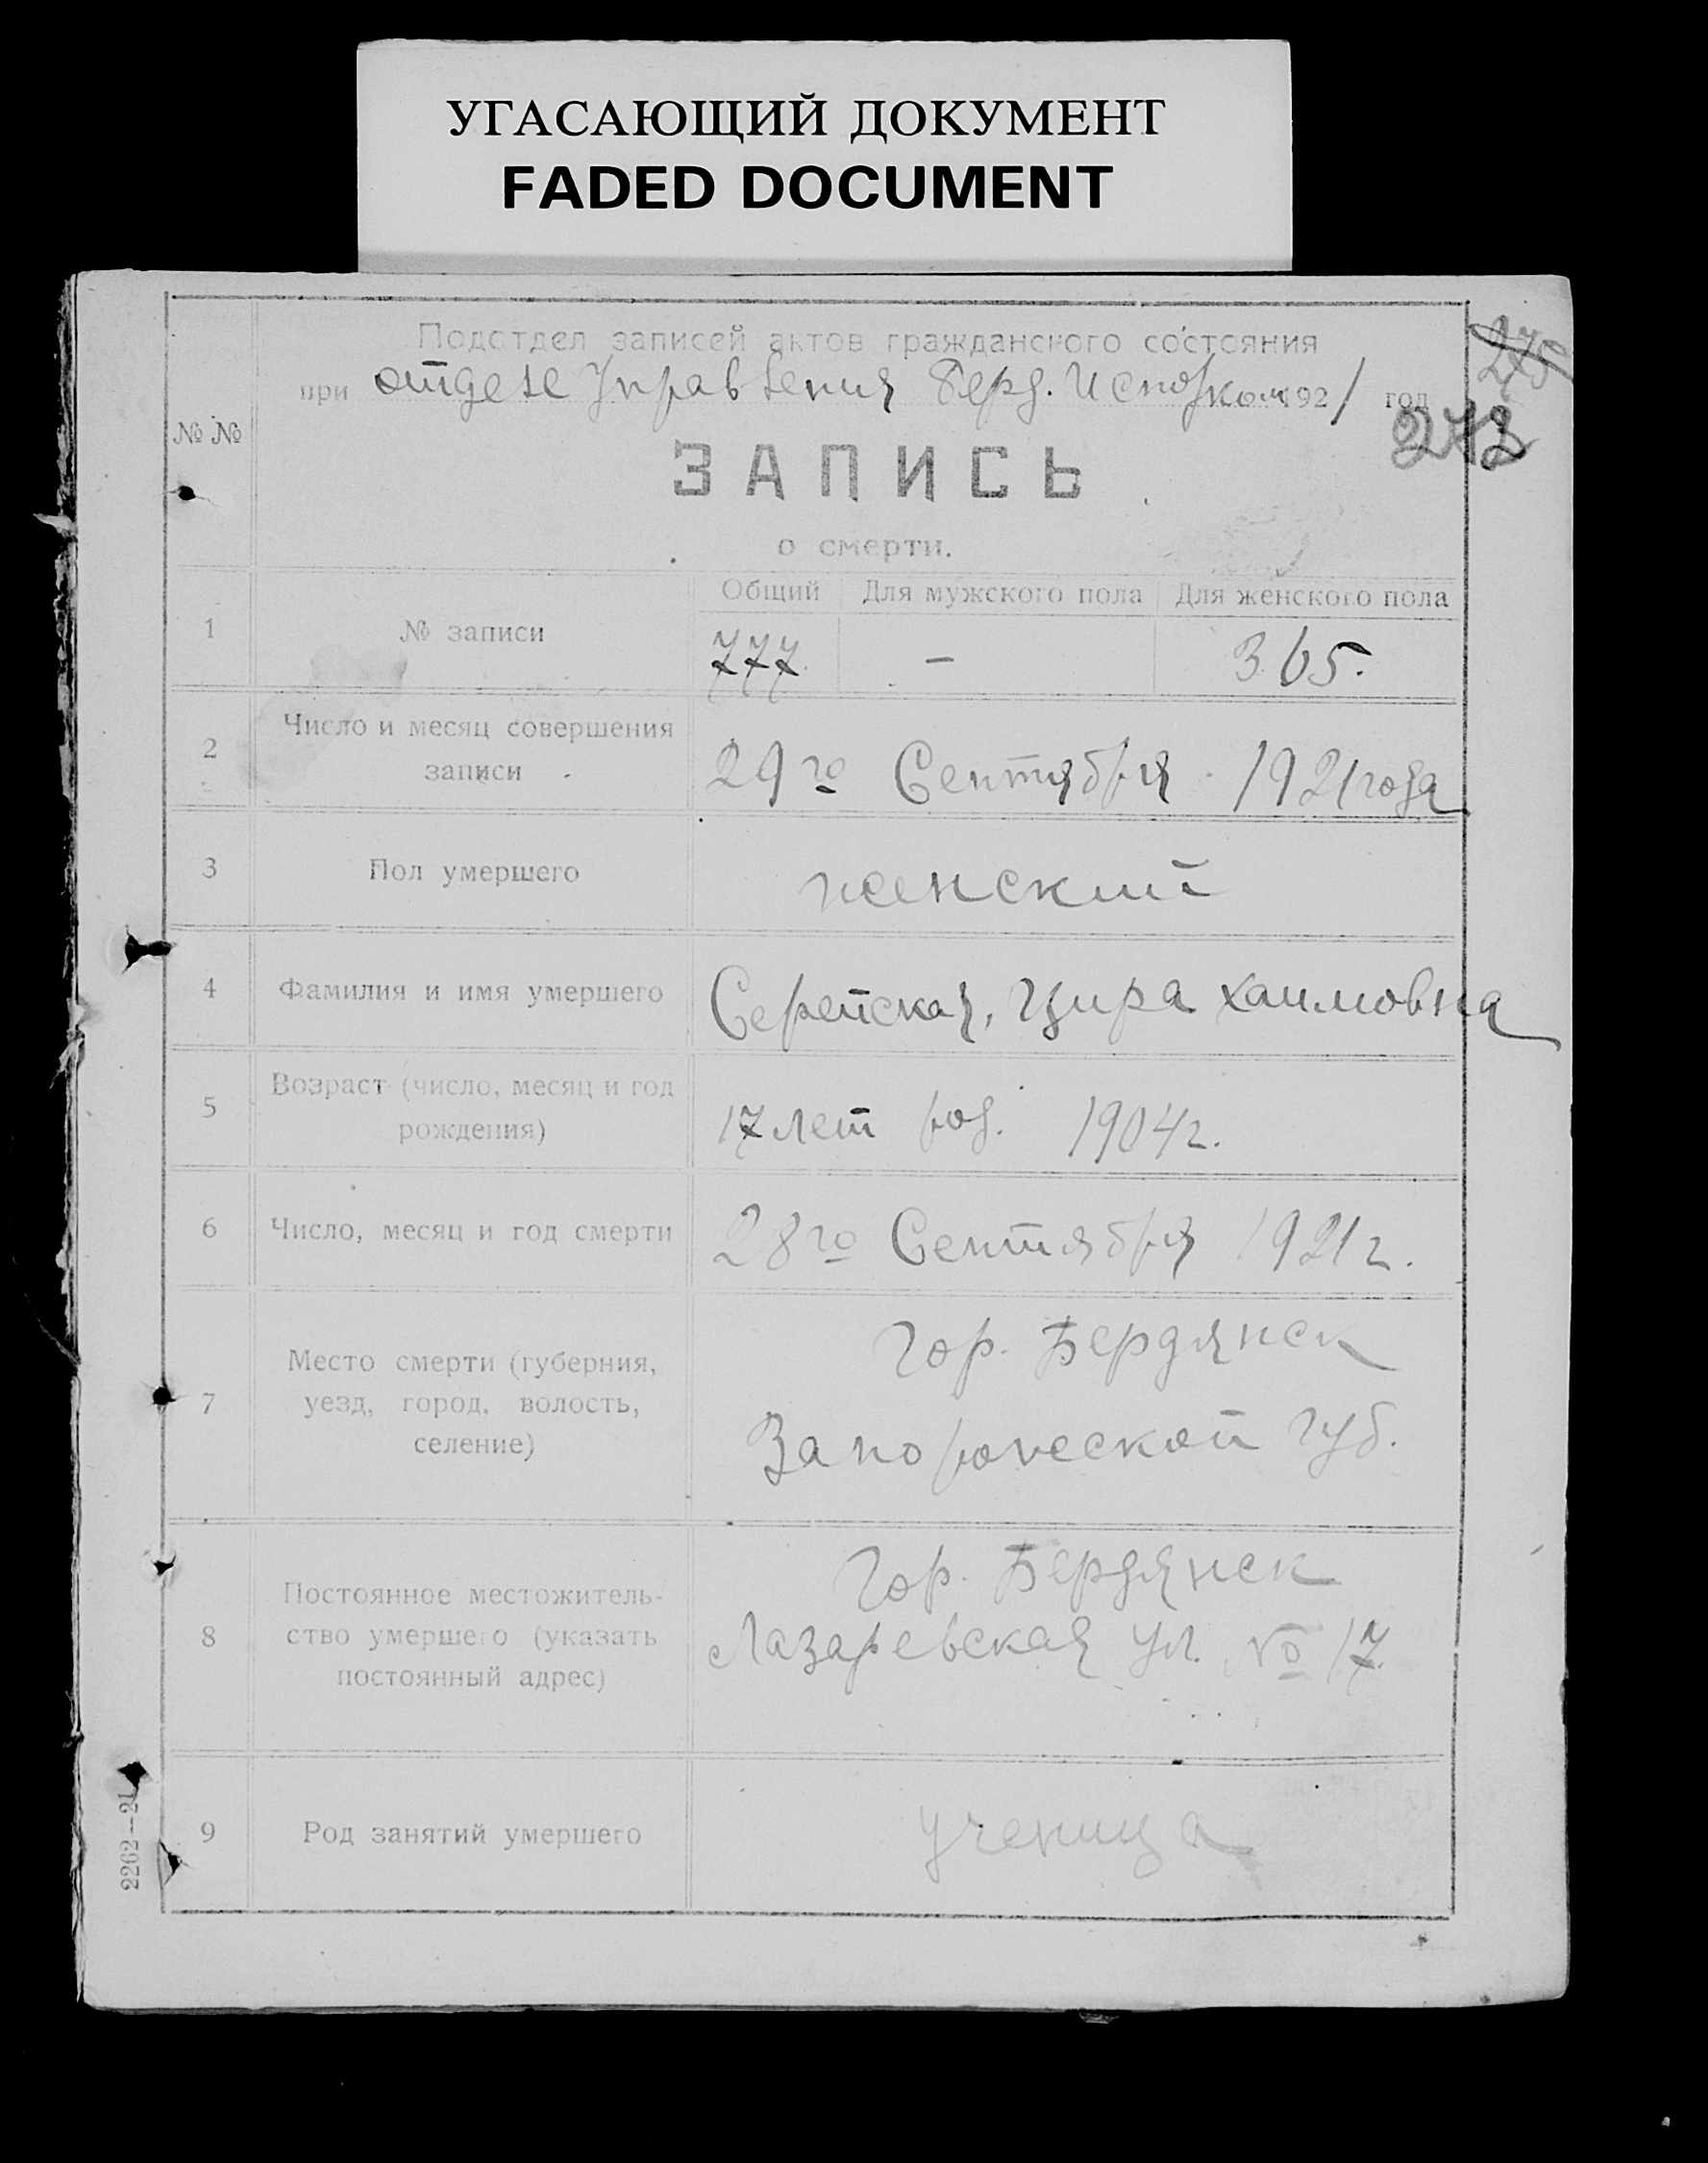 УГАСАЮЩИЙ ДОКУМЕНТ
FADED DOCUMENT
Подотдел записей актов гражданского состояния
при отделе Управления Берд. Исполком 1921 год
275
272
№ №
ЗАПИСЬ
о смерти.
Общий Для мужского пола Для женского пола
1 № записи 777. – 365.
2 Число и месяц совершения
записи 29го Сентября 1921 года
3 Пол умершего женский
4 Фамилия и имя умершего Серейская, Цира Хаимовна
5 Возраст (число, месяц и год
рождения) 17 лет род. 1904 г.
6 Число, месяц и год смерти 28го Сентября 1921 г.
7 Место смерти (губерния,
уезд, город, волость,
селение)
Гор. Бердянск
Запорожской губ.
8 Постоянное местожитель-
ство умершего (указать
постоянный адрес)
Гор. Бердянск
Лазаревская ул. № 17.
9 Род занятий умершего ученица
2262—21